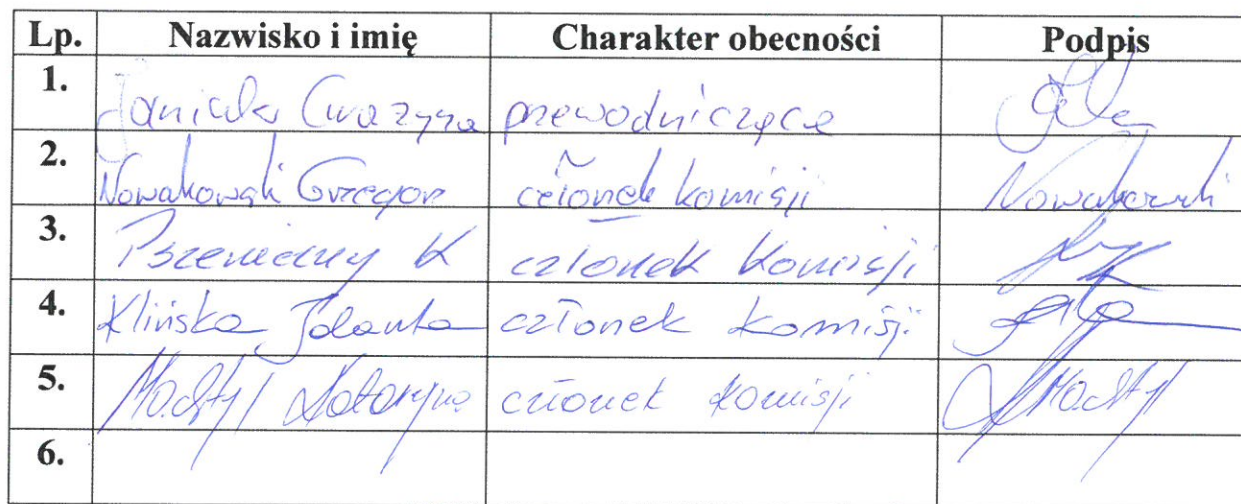 Lp. Nazwisko i imię Charakter obecności Podpis
1. Janicka Grażyna przewodnicząca
2. Nowakowski Grzegorz członek komisji Nowakowski
3. Pszeniczny K członek komisji
4. Klińska Jolanta członek komisji
5. Katarzyna członek komisji
6.